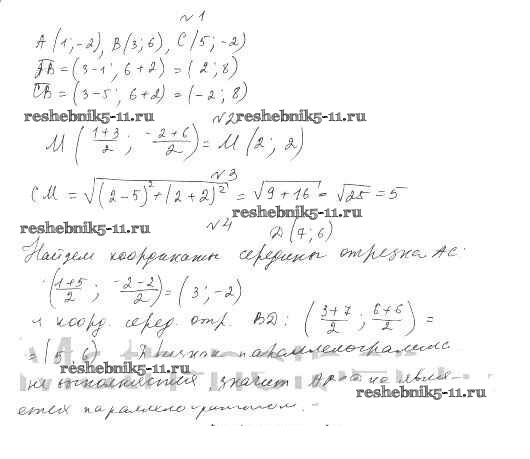 №1
A (1; -2), B(3; 6), C(5; -2)
AB = (3-1; 6+2) = (2; 8)
CB = (3-5; 6+2) = (-2; 8)
reshebnik5-11.ru №2 reshebnik5-11.ru
M (1+3/2; -2+6/2) = M (2; 2)
№3
CM = √((2-5)²+(2+2)²) = √9+16 = √25 = 5
reshebnik5-11.ru
reshebnik5-11.ru №4 D(7; 6)
Найдем координаты середины отрезка AC:
(1+5/2; -2-2/2) = (3; -2)
и коорд. серед. отр. BD: (3+7/2; 6+6/2) =
= (5; 6). Признак параллелограмма
reshebnik5-11.ru
не выполняется, значит не явля-
reshebnik5-11.ru
ется параллелограммом.